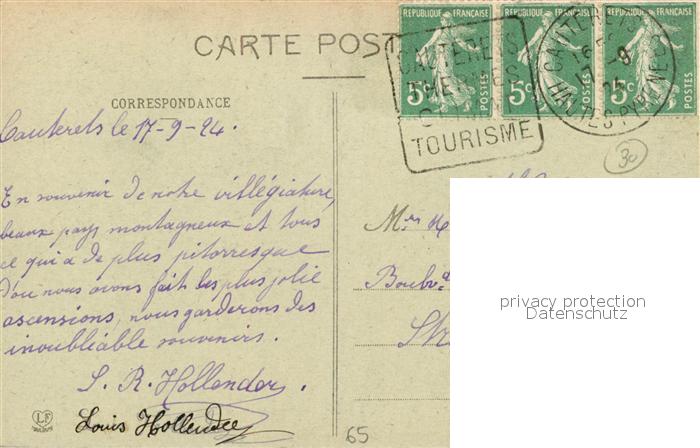 RÉPUBLIQUE FRANÇAISE RÉPUBLIQUE FRANÇAISE RÉPUBLIQUE FRANÇAISE
CARTE POST
CAUTERETS
THERMES
TOURISME
5c POSTES 5c POSTES 5c POSTES
CAUTERETS
HAUTES PYRENEES
CORRESPONDANCE
Cauterets le 17-9-24.
30
En souvenir de notre villégiature,
beaux pays montagneux et tous
ce qui a de plus pitorresque
d'ou nous avons fait les plus jolie
ascensions, nous garderons des
inoubliable souvenirs.
S. R. Hollender.
Louis Hollender
LF
65
privacy protection
Datenschutz